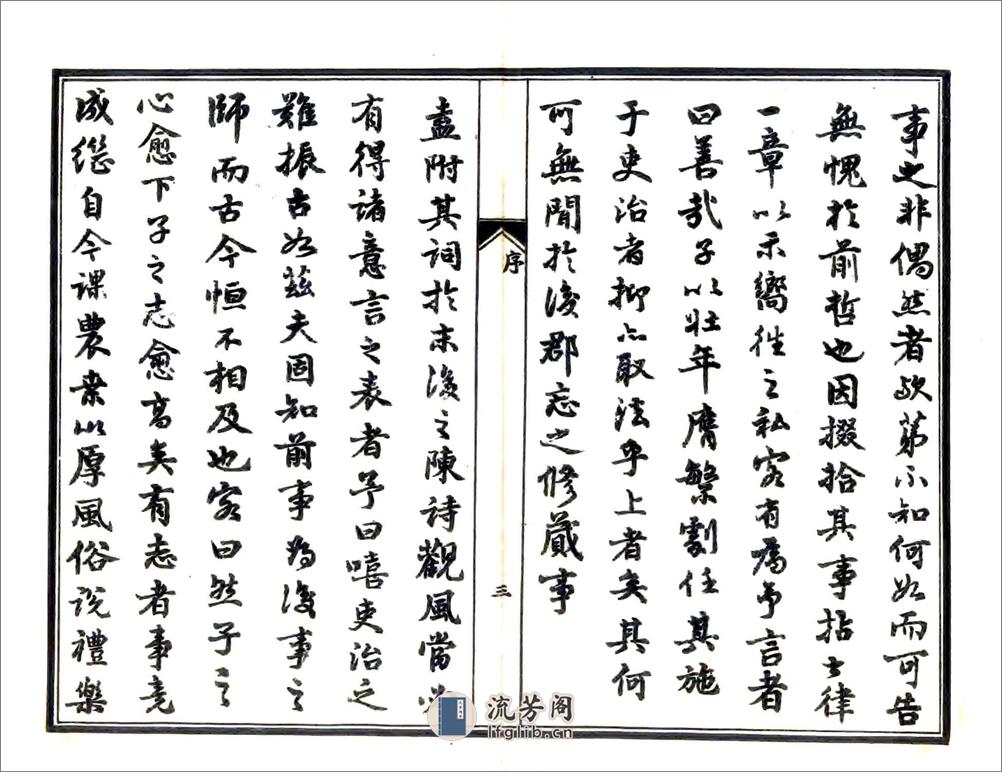 事之非偶然者歟第不知何如而可告
無愧於前哲也因掇拾其事括七律
一章以示嚮往之私客有為予言者
曰善哉子以壯年膺繁劇任其施
于吏治者抑亦取法乎上者矣其何
可無聞於後郡志之修蕆事
序
三
盍附其詞於末後之陳詩觀風當必
有得諸意言之表者予曰嘻吏治之
難振古如茲夫固知前事為後事之
師而古今恒不相及也客曰然子之
心愈下子之志愈高矣有志者事竟
成繼自今課農桑以厚風俗說禮樂
流芳阁
lfglib.cn